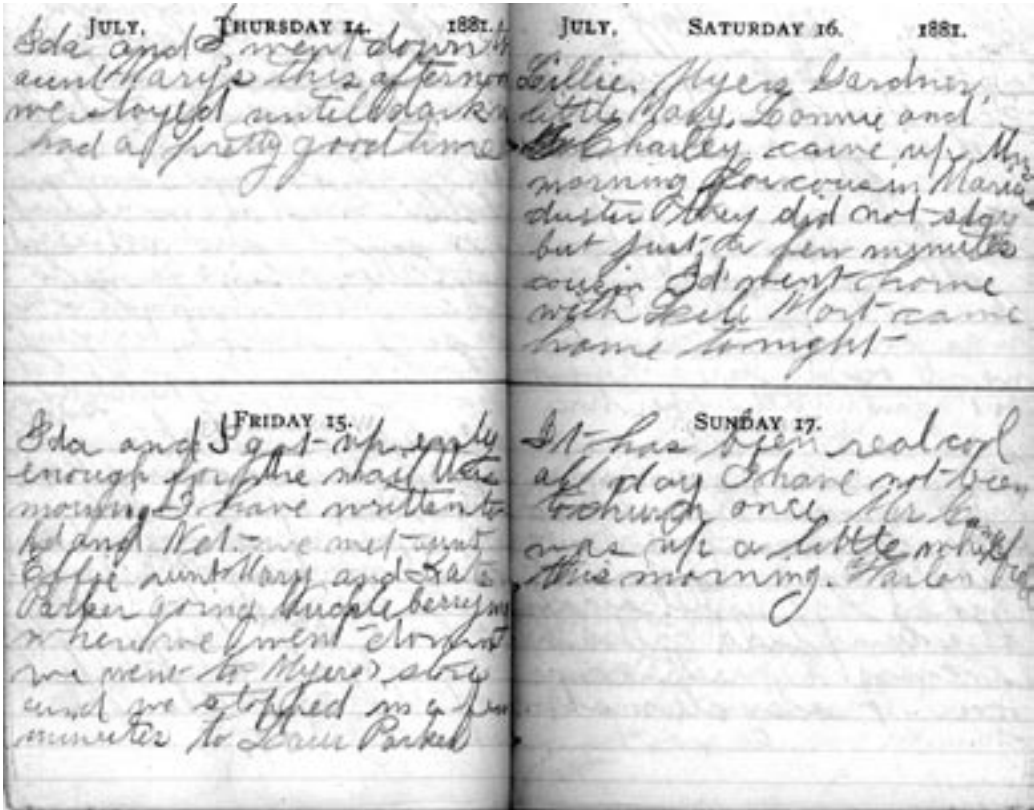 JULY, THURSDAY 14. 1881.
Ida and I went down to
aunt Mary's this afternoon
we stayed until dark
had a pretty good time
FRIDAY 15.
Ida and I got up early
enough for the mail this
morning I have written to
Ad and Net. we met aunt
Effie aunt Mary and Kate
Parker going huckleberrying
when we went down
we went to Myers store
and we stopped in a few
minutes to Parker
JULY, SATURDAY 16. 1881.
Lillie, Myers Gardner,
little Mary, Lonnie and
Charley came up this
morning for cousin Maria
duster they did not stay
but just a few minutes
cousin Id went home
with Mort came
home tonight
SUNDAY 17.
It has been real cool
all day I have not been
to church once Mr
was up a little while
this morning. Harlon